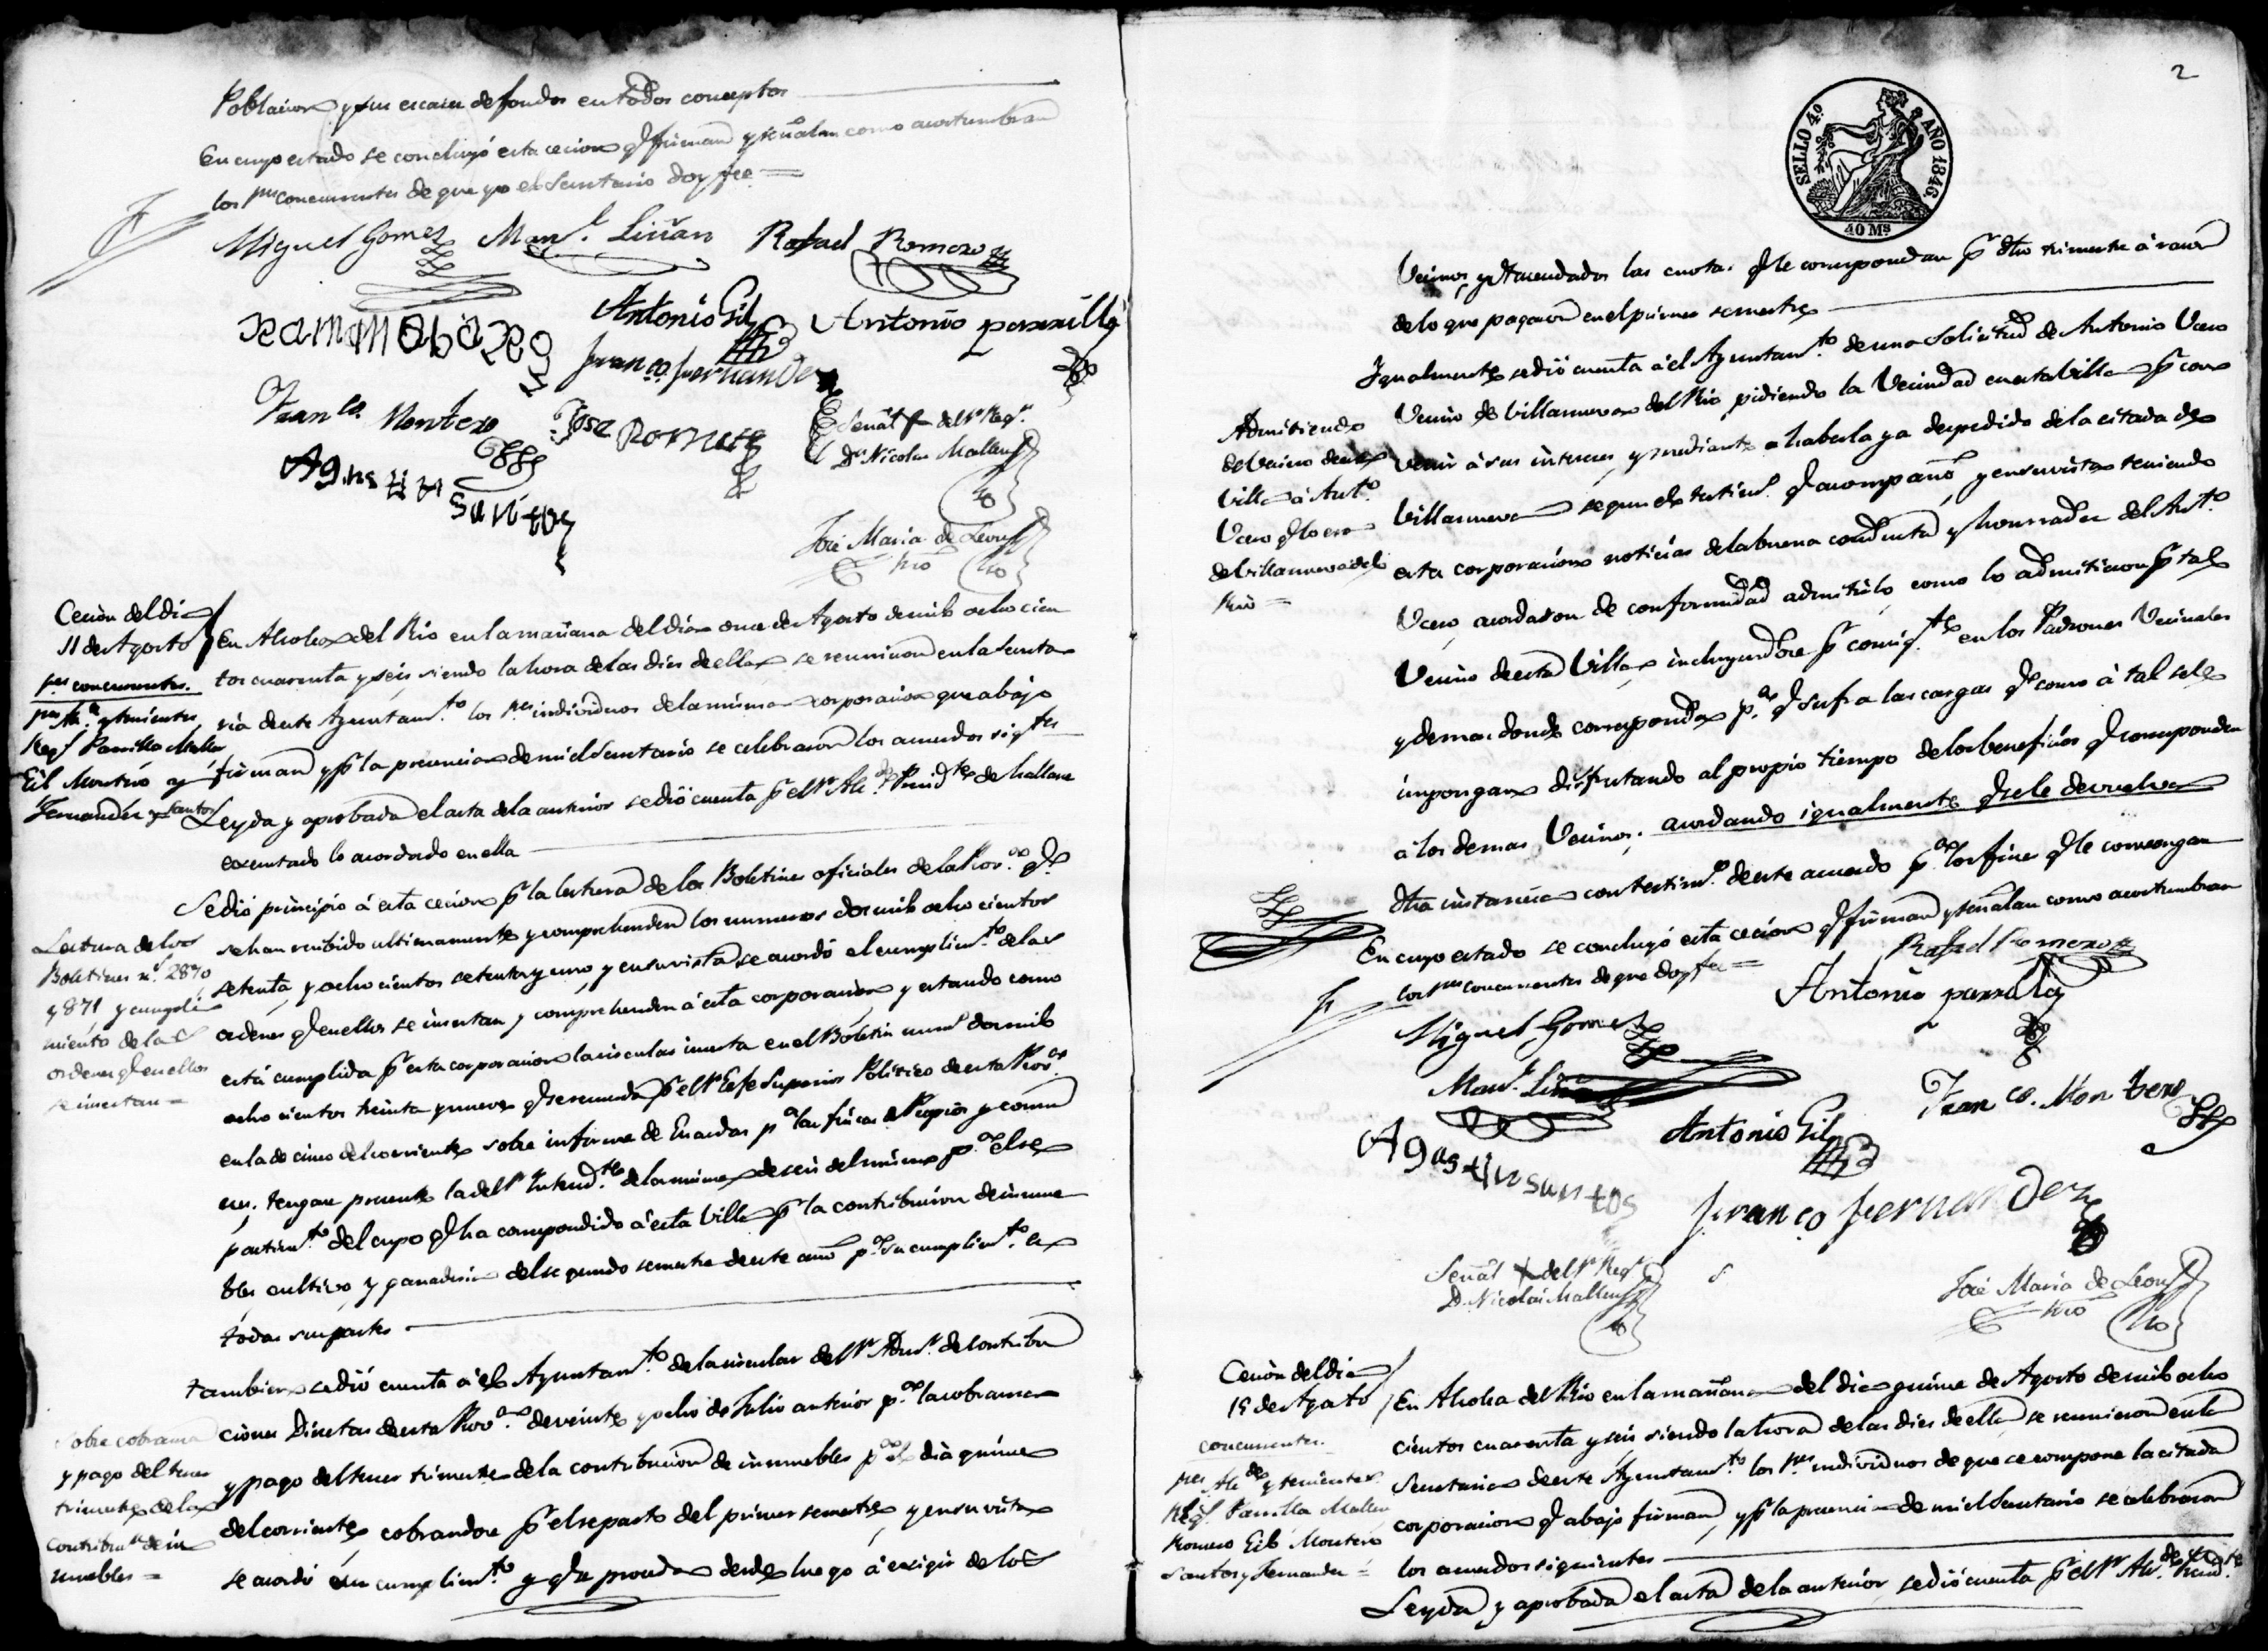 Poblacion y sus escases de fondos en todos conceptos
En cuyo estado se concluyó esta cecion q.e firman y señalan como acostumbran
los s.res concurrentes de que yo el Secretario doy fee =
Miguel Gomez Man.l Liñan Rafael Romero
Antonio Gil Antonio parrilla
Franco. fernandez
Fran.co Montero Jose Romero Señal + del S.r Reg.r
D.n Nicolas Mallen
Agustin Santos
José Maria de Leon
Srio
Cecion del dia
11 de Agosto
s.res concurrentes.
s.res Alc.e y tenientes
Reg.s Parrilla Mallen
Gil Montero y
Fernandez y Santos
En Alcolea del Rio en la mañana del dia once de Agosto de mil ocho cien
tos cuarenta y seis siendo la hora de las dies de ella se reunieron en la Secreta
ria de este Ayuntam.to los s.res individuos de la misma corporacion que abajo
firman y p.r la presencia de mi el Secretario se celebraron los acuerdos sig.tes
Leyda y aprobada el acta de la anterior se dió cuenta p.r el S.r Alc.de Presid.te de hallarse
executado lo acordado en ella
Lectura de los
Boletines n.s 2870
y 871 y cumpli
miento de las
ordenes q.e en ellos
se insertan =
Se dió principio á esta cecion p.r la lectura de los Boletines oficiales de la Prov.a q.e
se han recibido ultimamente y comprehenden los numeros dos mil ocho cientos
setenta, y ocho cientos setenta y uno, y en su vista se acordó el cumplim.to de las
ordenes q.e en ellos se insertan y comprehenden á esta corporacion y estando como
está cumplida p.r esta corporacion la circular inserta en el Boletin num.o dos mil
ocho cientos treinta y nueve q.e se recuerda p.r el S.r Gefe Superior Politico de esta Prov.a
en la de cinco del corriente sobre informe de Encardas p.a las fincas de Propios y comu
nes. tengase presente la del S.r Intend.te de la misma de seis del mismo p.a el re
partim.to del cupo q.e ha correspondido á esta Villa p.r la contribucion de inmue
bles cultivo y ganaderia del segundo semestre de este año p.a su cumplim.to en
todas sus partes
Sobre cobranza
y pago del tercer
trimestre de la
Contribu.n de in
muebles =
tambien se dió cuenta á el Ayuntam.to de la circular del S.r Adm.r de Contribu
ciones Directas de esta Prov.a de veinte y ocho de Julio anterior p.a la cobranza
y pago del tercer trimestre de la contribucion de inmuebles p.a el dia quince
del corriente, cobrandose p.r el reparto del primer semestre, y en su vista
se acordó su cumplim.to y q.e se proceda desde luego á exigir de los
2
SELLO 4.º AÑO 1846.
40 Ms
Vecinos y Hacendados las cuotas q.e le correspondan p.r dho trimestre á razon
de lo que pagaron en el primer semestre
Admitiendo
de Vecino de esta
Villa á Ant.o
Ucero q.e lo era
de Villanueva del
Rio =
Igualmente se dió cuenta á el Ayuntam.to de una Solicitud de Antonio Ucero
Vecino de Villanueva del Rio pidiendo la Vecindad en esta Villa p.r con
venir á sus intereses, y mediante a haberla ya despedido de la citada de
Villanueva segun el testim.o q.e acompañó y en su vista teniendo
esta corporacion noticias de la buena conducta y honrradez del Ant.o
Ucero, acordaron de conformidad admitirlo como lo admitieron p.r tal
Vecino de esta Villa, incluyendose p.r consig.te en los Padrones Vecinales
y demas donde corresponda p.a q.e sufra las cargas q.e como á tal se le
impongan disfrutando al propio tiempo de los beneficios q.e corresponden
á los demas Vecinos; acordando igualmente q.e se le devuelva
dha instancia con testim.o de este acuerdo p.a los fines q.e le convengan
En cuyo estado se concluyó esta cecion q.e firman y señalan como acostumbran
los s.res concurrentes de que doy fee =
Rafael Romero
Miguel Gomez Antonio parrilla
Man.l Liñan
Franco. Montero
Agustin santos Antonio Gil
franco fernandez
Señal + del S.r Reg.r
D.n Nicolas Mallen
José Maria de Leon
Srio
Cecion del dia
15 de Agosto
concurrentes.
s.res Alc.de y tenientes
Reg.s Parrilla Mallen
Romero Gil Montero
Santos y Fernandez =
En Alcolea del Rio en la mañana del dia quince de Agosto de mil ocho
cientos cuarenta y seis siendo la hora de las dies de ella se reunieron en la
Secretaria de este Ayuntam.to los s.res individuos de que se compone la citada
corporacion q.e abajo firman, y p.r la presencia de mi el Secretario se celebraron
los acuerdos siguientes
Leyda y aprobada el acta de la anterior, se dió cuenta p.r el S.r Alc.de Presid.te